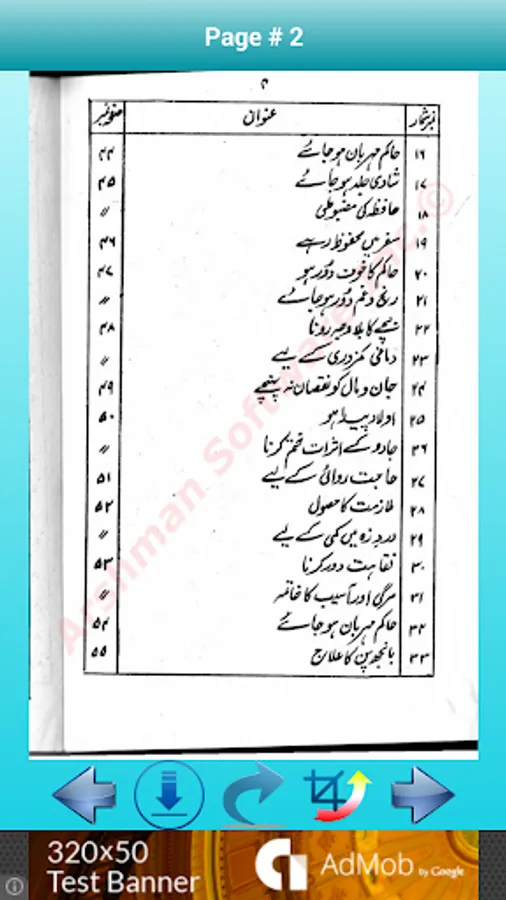 Page # 2
۴
نمبر شمار عنوان صفحہ نمبر
۱۶ حاکم مہربان ہو جائے ۴۴
۱۷ شادی جلد ہو جائے ۴۵
۱۸ حافظہ کی مضبوطی 〃
۱۹ سفر میں محفوظ رہے ۴۶
۲۰ حاکم کا خوف دور ہو ۴۷
۲۱ رنج و غم دور ہو جائے 〃
۲۲ بچے کا بلا وجہ رونا ۴۸
۲۳ دماغی کمزوری کے لیے 〃
۲۴ جان و مال کو نقصان نہ پہنچے ۴۹
۲۵ اولاد پیدا ہو ۵۰
۲۶ جادو کے اثرات ختم کرنا 〃
۲۷ حاجت روائی کے لیے ۵۱
۲۸ ملازمت کا حصول ۵۲
۲۹ درد زہ میں کمی کے لیے 〃
۳۰ نقاہت دور کرنا ۵۳
۳۱ مرگی اور آسیب کا خاتمہ 〃
۳۲ حاکم مہربان ہو جائے ۵۴
۳۳ بانجھ پن کا علاج ۵۵
Arshman Software Inc.©
320×50
Test Banner
AdMob by Google